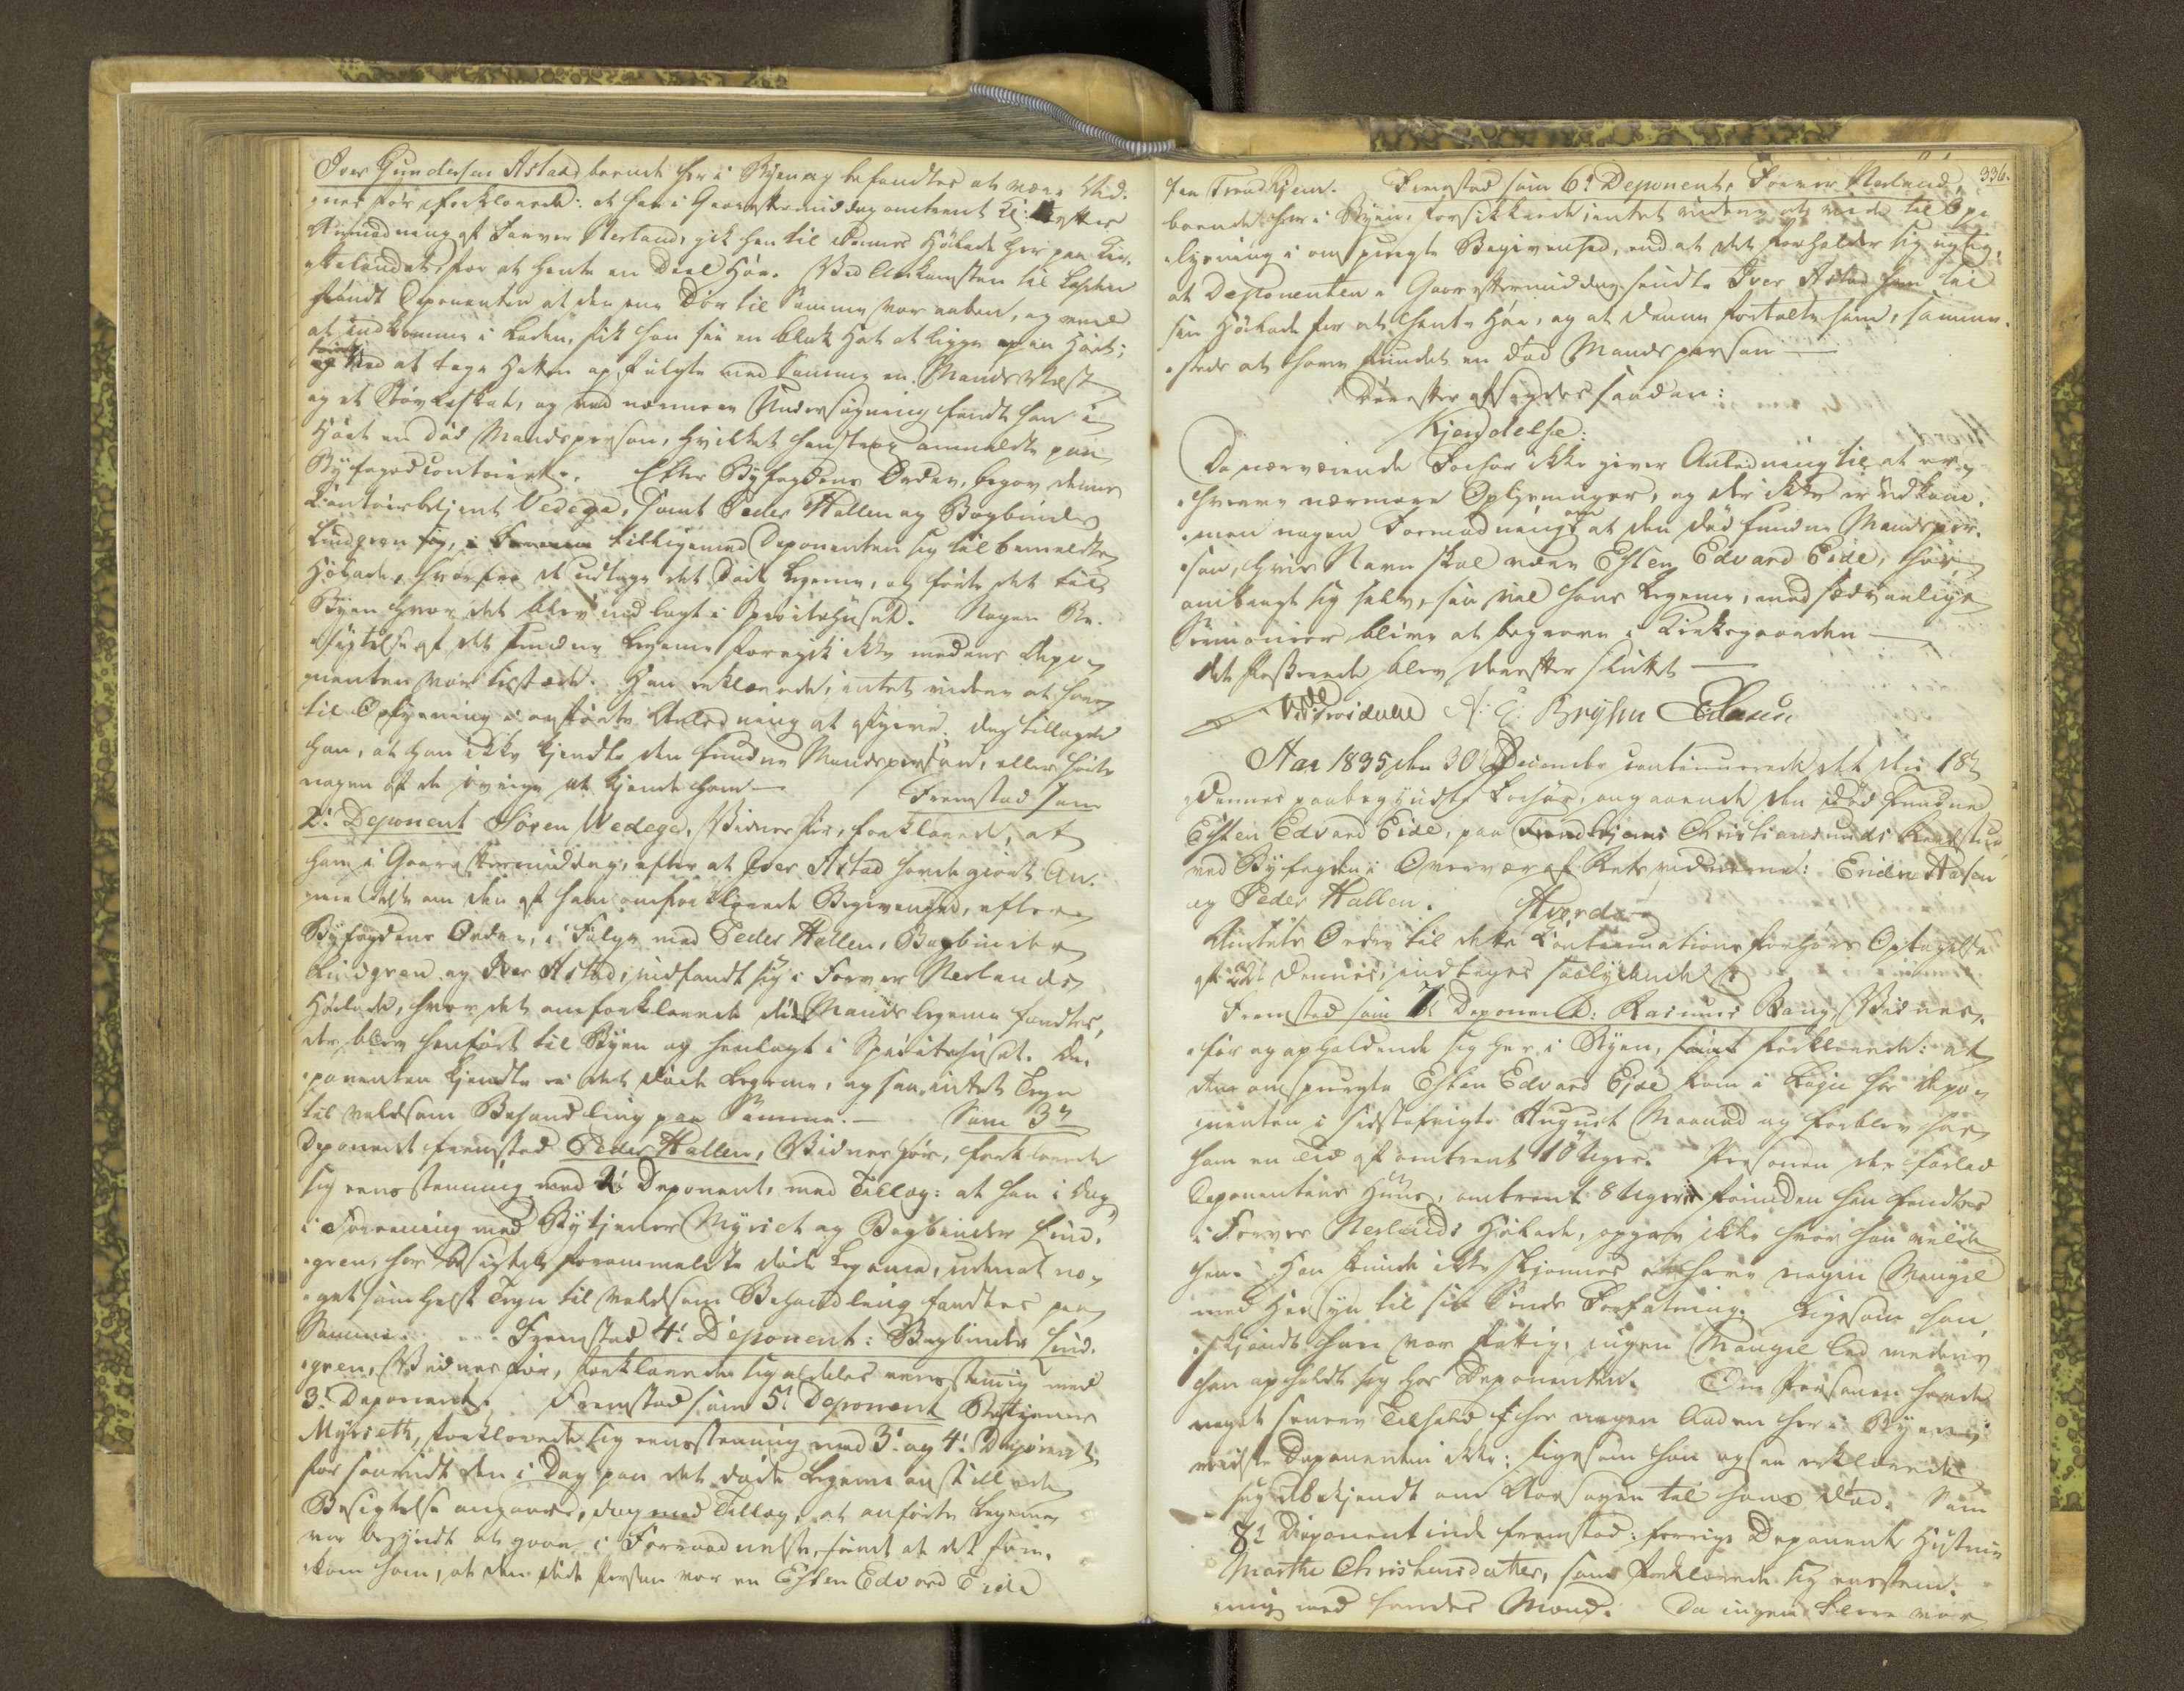 Iver Gundersen Astad boende her i Byen og befandtes at være Vid-
nes før forklarede: at han i Gaar eftermiddag omtrent Kl: 4 efter
Anmodning af Farver Nerland, gik hen til dennes Høelade her paa Kir-
kelandet, for at hente en Deel Høe. Ved Ankomsten til Laden
fandt Deponenten at den ene Dør til Samme var aaben, og ved
at indkomme i Laden, fik han see en blank Hat at ligge paa Høet;
og Ved at tage Hatten op fulgte med Samme en Mands Vest
og et Støvleskaft, og ved nærmere Undersøgning fandt han i
Høet en død Mandsperson, hvilket han strax anmeldte paa
Byfogedcontoiret. Efter Byfogdens Ordre, begav dennes
Contoirbetjent Vedege, samt Peder Hallen og Bogbinder
Lindgren sig, tilligemed Deponenten sig til bemeldte
Høelade, hvorfra de udtoge det døde Legeme, og førte det til
Byen hvor det blev nedlagt i Sprøitehuset. Nogen Be-
sigtelse af det fundne Legeme foregik ikke medens Depo-
nenten var tilstæde. Han erklærede, intet videre at have
til Oplysning i anførte Anledning at afgive. Dog tillagde
han, at han ikke kjendte den fundne Mandsperson, eller hørte
nogen af de øvrige at kjende ham — Fremstod som
2' Deponent Søren Vedege, Vidnesfør, forklarede, at
han i Gaar eftermiddag, efter at Iver Astad havde gjort An-
meldelse om den af ham omforklarede Begivenhed, efter
Byfogdens Ordre, i Følge med Peder Hallen, Bogbinder
Lindgren og Iver Astad, indfandt sig i Farver Nerlands
Høelade, hvor det omforklarede døde Mands legeme fandtes,
der blev henført til Byen og henlagt i Sprøitehuset. De-
ponenten kjendte ei det døde Legeme, og saa intet Tegn
til voldsom Behandling paa Samme. — Som 3'
Deponent fremstod Peder Hallen, Vidnesfør, forklarede
sig eensstemmig med 2' Deponent, med Tillæg: at han i Dag
i Forening med Bytjener Myrieth og Bogbinder Lind-
gren, har besigtet forommeldte døde Legeme, uden at no-
get somhelst Tegn til voldsom Behandling fandtes paa
Samme. Fremstod 4' Deponent: Bogbinder Lind-
gren, Vidnesfør, forklarede sig aldeles eensstemmig med
3' Deponent. Fremstod som 5' Deponent Bytjener
Myrieth, forklarede sig eensstemmig med 3' og 4' Deponent,
for saavidt den i Dag paa det døde Legeme anstillede
Besigtelse angaaer, dog med Tillæg, at anførte Legeme
var begyndt at gaae i Forraadnelse, samt at det fore-
kom ham, at den døde Person var en Esten Edvard Eide
336.
fra Trondhjem. Fremstod som 6' Deponent, Farver Nerland,
boende her i Byen, forsikkrede, intet videre at vide til Op-
lysning i omspurgte Begivenhed, end at det forholder sig rigtig,
at Deponenten i Gaar eftermiddag sendte Iver Astad hen til
sin Høelade for at hente Høe, og at denne fortalte ham, samme-
steds at have fundet en død Mandsperson —
Derefter afsagdes saadan:
Kjendelse:
Da nærværende Forhør ikke giver Anledning til at er-
hverve nærmere Oplysninger, og der ikke er udkom-
men nogen Formodning om at den død fundne Mandsper-
son, hvis Navn skal være Esten Edvard Eide, har
ombragt sig selv, saa vil hans Legeme, med sædvanlige
Ceremonier blive at begrave i Kirkegaarden —
Det Passerede blev derefter sluttet —
A: E: Bryhn
Aar 1835 den 30' December continueredes det den 18'
dennes paabegyndte Forhør, angaaende den død fundne
Esten Edvard Eide, paa Christiansunds Raadstue,
ved Byfogden i Overvær af Retsvidnerne: Erich Aasen
og Peder Hallen. Hvorda
Amtets Ordre til dette Continuations forhørs Optagelse
af 22de dennes, indtages saalydende
Fremstod som 7de Deponent: Rasmus Bang, Vidnes-
før og opholdende sig her i Byen, forklarede: at
den omspurgte Esten Edvard Eide kom i Logie hos Depo-
nenten i sidstafvigte August Maaned og forblev hos
ham en Tid af omtrent 10 Uger. Personen der forlod
Deponentens Huus, omtrent 8 Uger førinden han fandtes
i Farver Nerlands Høelade, opgav ikke hvor han vilde
hen. Han kunde ikke skjønnes at have nogen Mangel
med Hensyn til sin Sinds Forfatning, ligesom han,
skjøndt han var fattig, ingen Mangel led medens
han opholdt sig hos Deponenten. Om Personen havde
noget senere Tilhold hos nogen Anden her i Byen
vidste Deponenten ikke; ligesom han ogsaa erklærede
sig ubekjendt om Aarsagen til hans Død. Som
8' Deponentinde fremstod: forrige Deponents Hustrue
Marthe Christensdatter, som forklarede sig eensstem-
mig med hendes Mand. Da ingen flere var